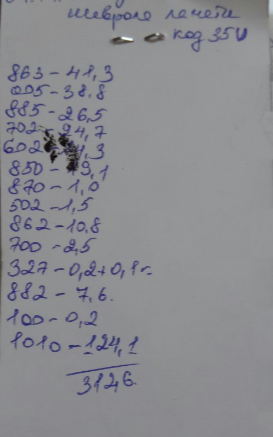 шевроле лачети
код 35U
863-41,3
005-38.8
885-26,5
702-24,7
602-
850-
870-1,0
502-1,5
862-10.8
700-2,5
327-0,2+0,1г.
882-7.6.
100-0,2
1010-124,1
312,6.